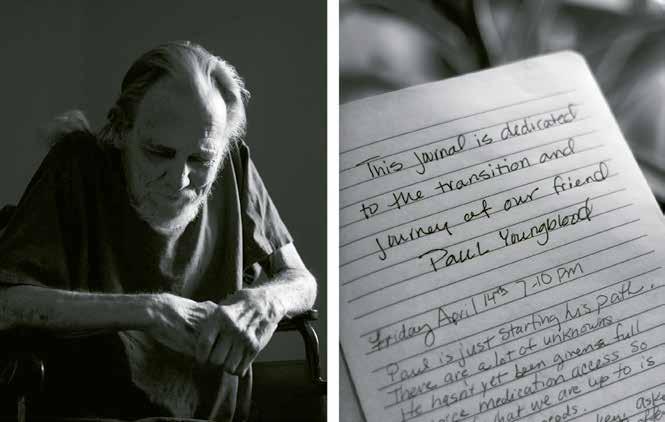 This journal is dedicated
to the transition and
journey of our friend
Paul Youngblood
Friday April 14th 7-10 pm
Paul is just starting his path.
There are a lot of unknowns.
He hasn't yet been given full
medication access so
what we are up to is